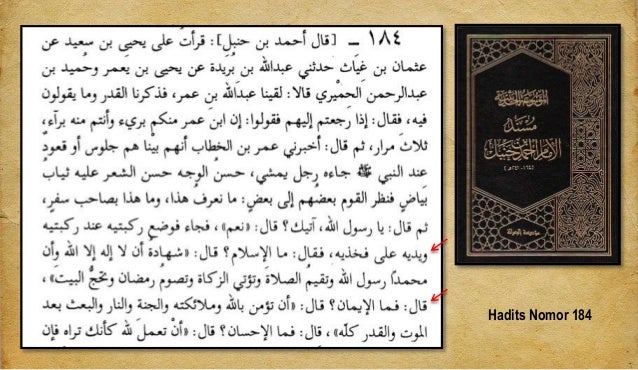 ١٨٤ ــ [قال أحمد بن حنبل]: قرأتُ على يحيى بن سعيد عن
عثمان بن غِيَاث حدثني عبدالله بن بُرَيدة عن يحيى بن يَعمر وحُميد بن
عبدالرحمن الحِمْيَري قالا: لقينا عبدالله بن عمر، فذكرنا القدر وما يقولون
فيه، فقال: إذا رَجعتم إليهم فقولوا: إن ابن عمر منكم بريء وأنتم منه بُرآء،
ثلاث مرار، ثم قال: أخبرني عمر بن الخطاب أنهم بينا هم جلوس أو قعودٌ
عند النبي ﷺ جاءه رجل يمشي، حسنُ الوجه حسن الشعر عليه ثياب
بَياضٍ فنظر القوم بعضهم إلى بعضٍ: ما نعرف هذا، وما هذا بصاحب سفرٍ،
ثم قال: يا رسول الله، آتيك؟ قال: «نعم»، فجاء فوضع ركبتيه عند ركبتيه
ويديه على فخذيه، فقال: ما الإسلام؟ قال: «شهادة أن لا إله إلا الله وأن
محمداً رسول الله وتقيمُ الصلاة وتؤتي الزكاة وتصومُ رمضان وتحجُّ البيت»،
قال: فما الإيمان؟ قال: «أن تؤمن بالله وملائكته والجنة والنار والبعث بعد
الموت والقدر كلّه»، قال: فما الإحسان؟ قال: «أنْ تعملَ لله كأنك تراه فإن
الموسوعة الحديثية
مسند
الإمام أحمد بن حنبل
(١٦٤ - ٢٤١ هـ)
مؤسسة الرسالة
Hadits Nomor 184